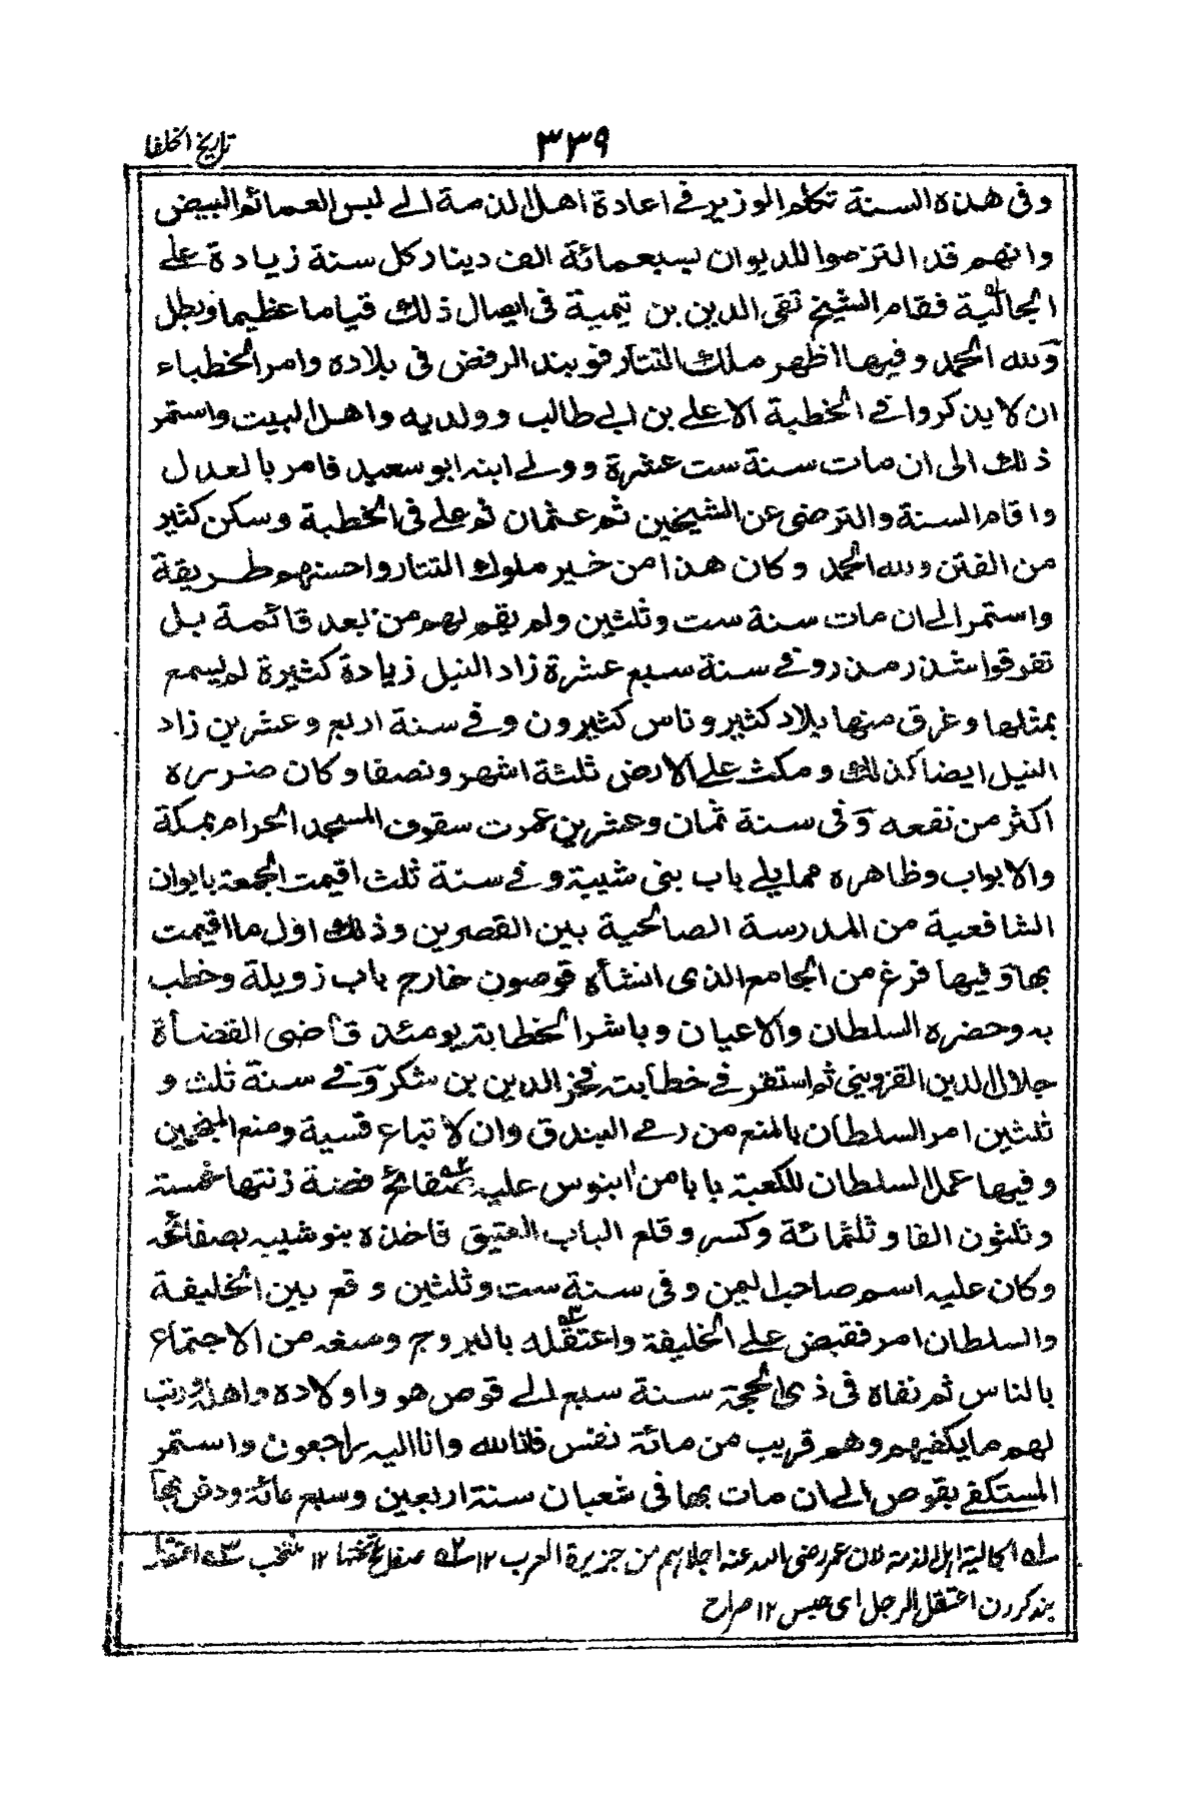 تاريخ الخلفا
٣٣٩
وفى هذه السنة تكلم الوزير فے اعادة اهل الذمة الے لبس العمائم البيض
وانهم قد التزموا للديوان بسبعمائة الف دينار كل سنة زيادة علے
الجالية فقام الشيخ تقى الدين بن تيمية فى ايصال ذلك قياما عظيما وبطل
ولله الحمد وفيها اظهر ملك التتار خوبند الرفض فى بلاده وامر الخطباء
ان لا يذكروا فے الخطبة الا علے بن ابے طالب وولديه واهل البيت واستمر
ذلك الى ان مات سنة ست عشرة وولے ابنه ابو سعيد فامر بالعدل
واقام السنة والترضى عن الشيخين ثم عثمان ثم علے فى الخطبة وسكن كثير
من الفتن ولله الحمد وكان هذا من خير ملوك التتار واحسنهم طريقة
واستمر الے ان مات سنة ست وثلثين ولم يقم لهم من بعد قائمة بل
تفرقوا شذر مذر وفے سنة سبع عشرة زاد النيل زيادة كثيرة لم يسمع
بمثلها وغرق منها بلاد كثير وناس كثيرون وفے سنة اربع وعشرين زاد
النيل ايضا كذلك ومكث علے الارض ثلثة اشهر ونصفا وكان ضرره
اكثر من نفعه وفى سنة ثمان وعشرين عمرت سقوف المسجد الحرام بمكة
والابواب وظاهره مما يلے باب بنى شيبة وفے سنة ثلث اقيمت الجمعة بايوان
الشافعية من المدرسة الصالحية بين القصرين وذلك اول ما اقيمت
بها وفيها فرغ من الجامع الذى انشأه قوصون خارج باب زويلة وخطب
به وحضره السلطان والاعيان وباشر الخطابة يومئذ قاضى القضاة
جلال الدين القزوينى ثم استقر فے خطابته فخر الدين بن شكر وفے سنة ثلث و
ثلثين امر السلطان بالمنع من رمے البندق وان لا تباع قسية ومنع المنجمين
وفيها عمل السلطان للكعبة بابا من ابنوس عليه صفائح فضة زنتها خمسة
وثلثون الفا وثلثمائة وكسر وقلع الباب العتيق فاخذه بنو شيبه بصفائحه
وكان عليه اسم صاحب اليمن وفى سنة ست وثلثين وقع بين الخليفة
والسلطان امر فقبض علے الخليفة واعتقله بالبروج ومنعه من الاجتماع
بالناس ثم نفاه فى ذى الحجة سنة سبع الے قوص هو واولاده واهله ورتب
لهم ما يكفيهم وهم قريب من مائة نفس فانا لله وانا اليه راجعون واستمر
المستكفے بقوص الے ان مات بها فى شعبان سنة اربعين وسبع مائة ودفن بها
له الجالية اهل الذمة لان عمر رضى الله عنه اجلاهم من جزيرة العرب ١٢ ٢ه صفائح تختها ١٢ منتخب ٣ه اعتقال
بند كردن اعتقل الرجل اى حبس ١٢ صراح